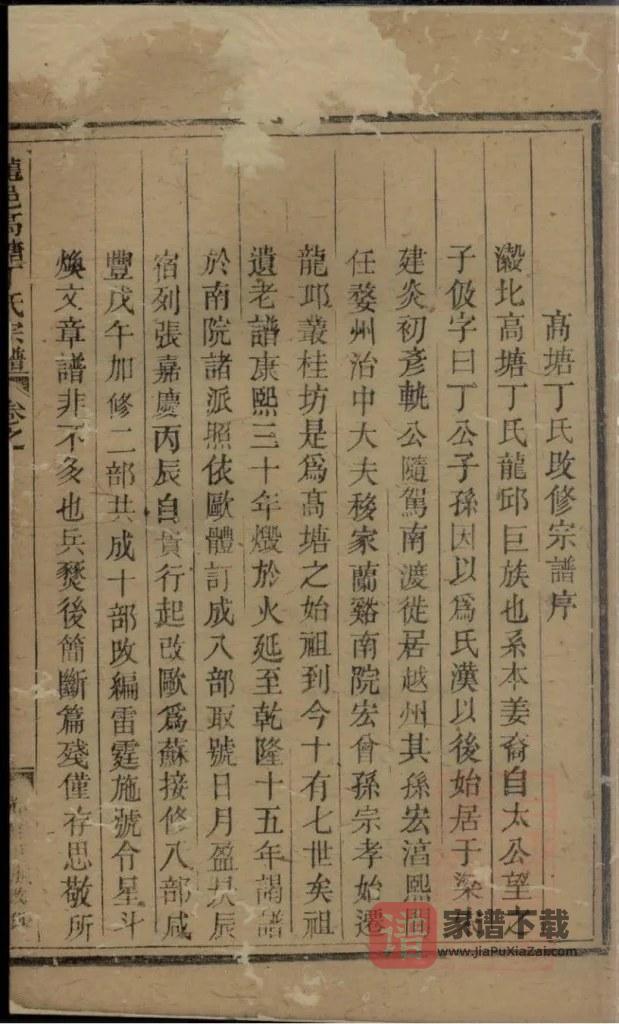 高塘丁氏改修宗譜序
瀫北高塘丁氏龍邱巨族也系本姜裔自太公望之
子伋字曰丁公子孫因以爲氏漢以後始居于梁
建炎初彥軌公隨駕南渡徙居越州其孫宏湻熙間
任婺州治中大夫移家蘭谿南院宏曾孫宗孝始遷
龍邱叢桂坊是爲高塘之始祖到今十有七世矣祖
遺老譜康熙三十年燬於火延至乾隆十五年謁譜
於南院諸派照依歐體訂成八部取號日月盈昃辰
宿列張嘉慶丙辰自貴行起改歐爲蘇接修八部咸
豐戊午加修二部共成十部改編雷霆施號令星斗
煥文章譜非不多也兵燹後簡斷篇殘僅存思敬所
龍邑高塘丁氏宗譜 卷之一
家谱下载
www.JiaPuXiaZai.com
谱